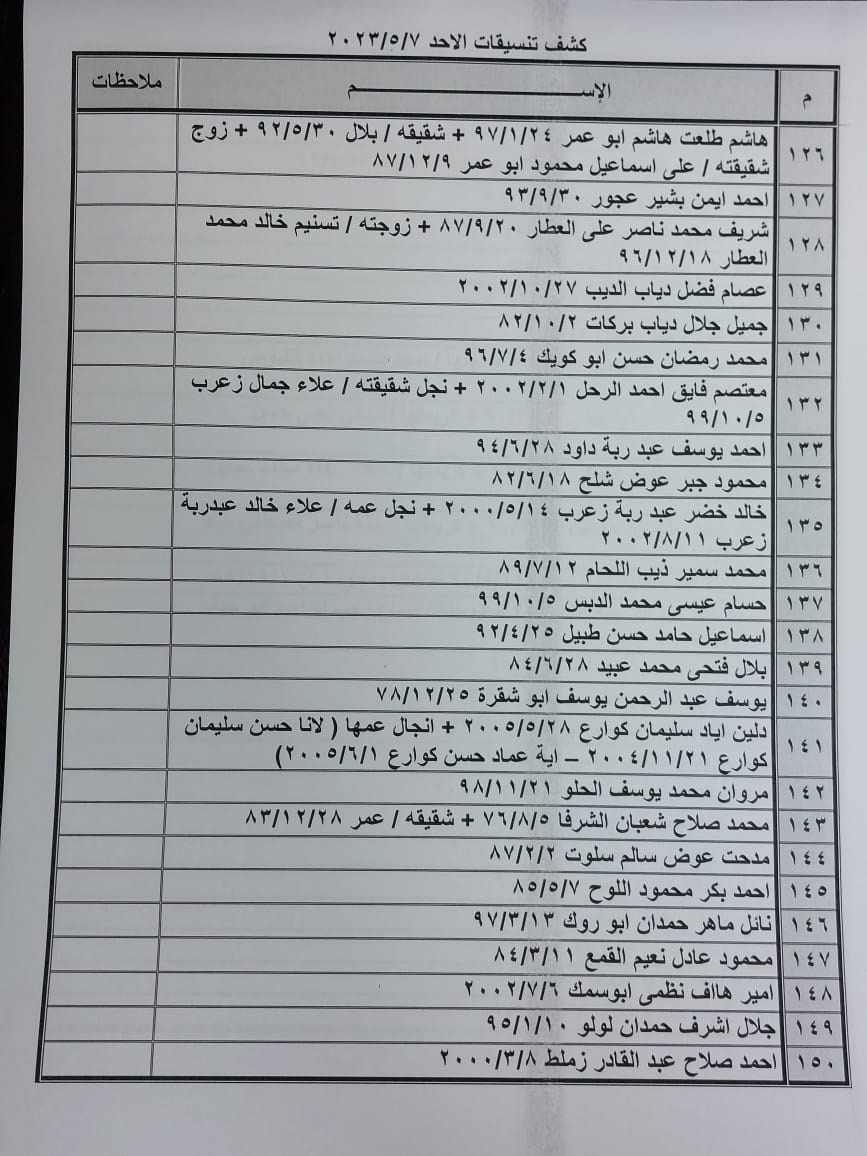 كشف تنسيقات الاحد ٢٠٢٣/٥/٧
م الإســــــــــــم ملاحظات
١٢٦ هاشم طلعت هاشم ابو عمر ٩٧/١/٢٤ + شقيقه / بلال ٩٢/٥/٣٠ + زوج
شقيقته / على اسماعيل محمود ابو عمر ٨٧/١٢/٩
١٢٧ احمد ايمن بشير عجور ٩٣/٩/٣٠
١٢٨ شريف محمد ناصر على العطار ٨٧/٩/٢٠ + زوجته / تسنيم خالد محمد
العطار ٩٦/١٢/١٨
١٢٩ عصام فضل دياب الديب ٢٠٠٢/١٠/٢٧
١٣٠ جميل جلال دياب بركات ٨٢/١٠/٢
١٣١ محمد رمضان حسن ابو كويك ٩٦/٧/٤
١٣٢ معتصم فايق احمد الرحل ٢٠٠٢/٢/١ + نجل شقيقته / علاء جمال زعرب
٩٩/١٠/٥
١٣٣ احمد يوسف عبد ربة داود ٩٤/٦/٢٨
١٣٤ محمود جبر عوض شلح ٨٢/٦/١٨
١٣٥ خالد خضر عبد ربة زعرب ٢٠٠٠/٥/١٤ + نجل عمه / علاء خالد عبدربة
زعرب ٢٠٠٢/٨/١١
١٣٦ محمد سمير ذيب اللحام ٨٩/٧/١٢
١٣٧ حسام عيسى محمد الدبس ٩٩/١٠/٥
١٣٨ اسماعيل حامد حسن طبيل ٩٢/٤/٢٥
١٣٩ بلال فتحى محمد عبيد ٨٤/٦/٢٨
١٤٠ يوسف عبد الرحمن يوسف ابو شقرة ٧٨/١٢/٢٥
١٤١ دلين اياد سليمان كوارع ٢٠٠٥/٥/٢٨ + انجال عمها ( لانا حسن سليمان
كوارع ٢٠٠٤/١١/٢١ – اية عماد حسن كوارع ٢٠٠٥/٦/١)
١٤٢ مروان محمد يوسف الحلو ٩٨/١١/٢١
١٤٣ محمد صلاح شعبان الشرفا ٧٦/٨/٥ + شقيقه / عمر ٨٣/١٢/٢٨
١٤٤ مدحت عوض سالم سلوت ٨٧/٢/٢
١٤٥ احمد بكر محمود اللوح ٨٥/٥/٧
١٤٦ نائل ماهر حمدان ابو روك ٩٧/٣/١٣
١٤٧ محمود عادل نعيم القمع ٨٤/٣/١١
١٤٨ امير هااف نظمى ابوسمك ٢٠٠٢/٧/٦
١٤٩ جلال اشرف حمدان لولو ٩٥/١/١٠
١٥٠ احمد صلاح عبد القادر زملط ٢٠٠٠/٣/٨